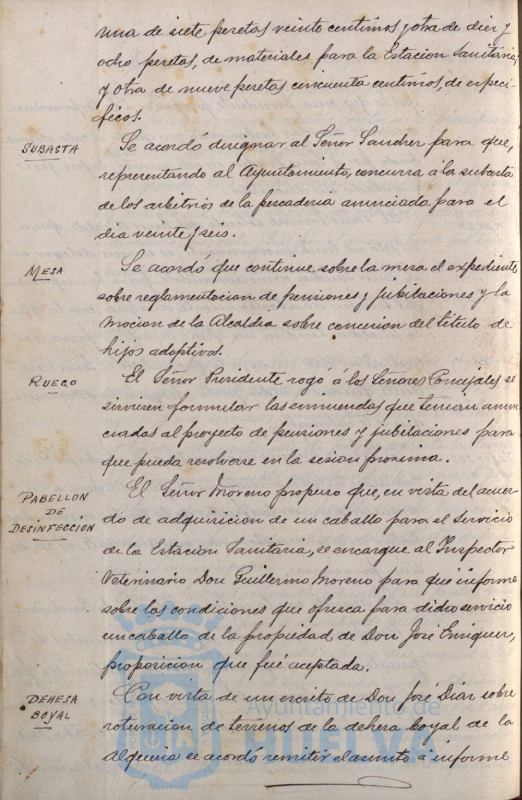 una de siete pesetas veinte centimos y otra de diez y
ocho pesetas, de materiales para la Estacion Sanitaria,
y otra de nueve pesetas cincuenta centimos, de especi-
ficos.
SUBASTA
Se acordó designar al Señor Sanchez para que,
representando al Ayuntamiento, concurra á la subasta
de los arbitrios de la pescaderia anunciada para el
dia veinte y seis.
MESA
Se acordó que continue sobre la mesa el expediente
sobre reglamentacion de pensiones y jubilaciones y la
mocion de la Alcaldia sobre concesion del titulo de
hijos adoptivos.
RUEGO
El Señor Presidente rogó á los Señores Concejales se
sirviesen formular las enmiendas que tenian anun-
ciadas al proyecto de pensiones y jubilaciones para
que pueda resolverse en la sesion proxima.
PABELLON
DE
DESINFECCIÓN
El Señor Moreno propuso que, en vista del acuer-
do de adquisicion de un caballo para el servicio
de la Estacion Sanitaria, se encargue al Inspector
Veterinario Don Guillermo Moreno para que informe
sobre las condiciones que ofrezca para dicho servicio
un caballo de la propiedad de Don José Enriquez,
proposicion que fué aceptada.
DEHESA
BOYAL
Con vista de un escrito de Don José Diaz sobre
roturacion de terrenos de la dehesa boyal de la
Alqueria se acordó remitir el asunto á informe
Ayuntamiento de
HUELVA